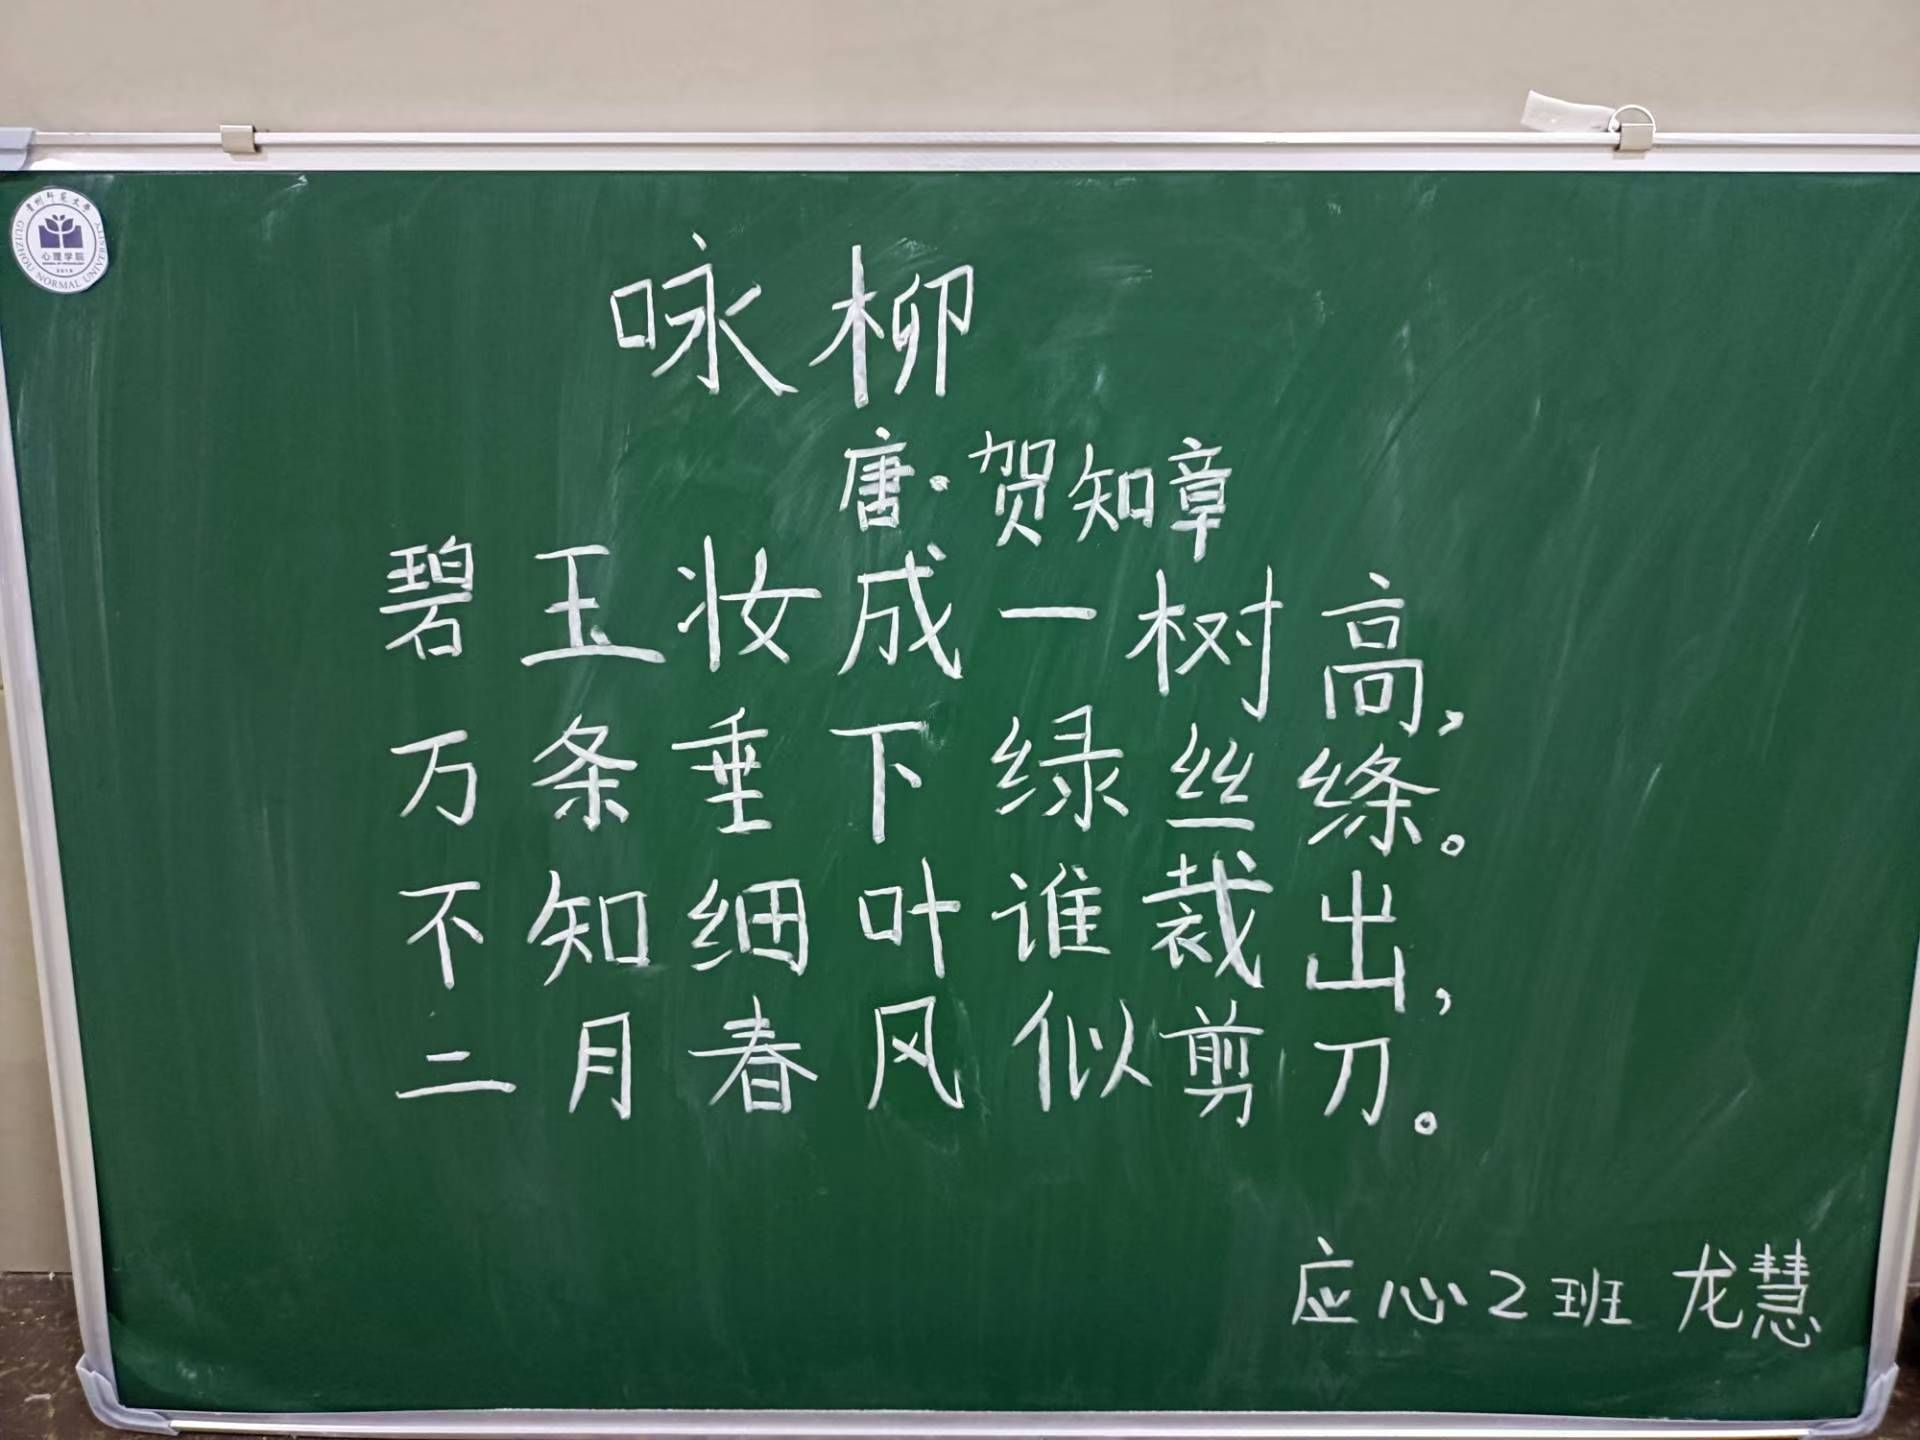 贵州师范大学
GUIZHOU NORMAL UNIVERSITY
心理学院
咏柳
唐·贺知章
碧玉妆成一树高，
万条垂下绿丝绦。
不知细叶谁裁出，
二月春风似剪刀。
应心2班 龙慧